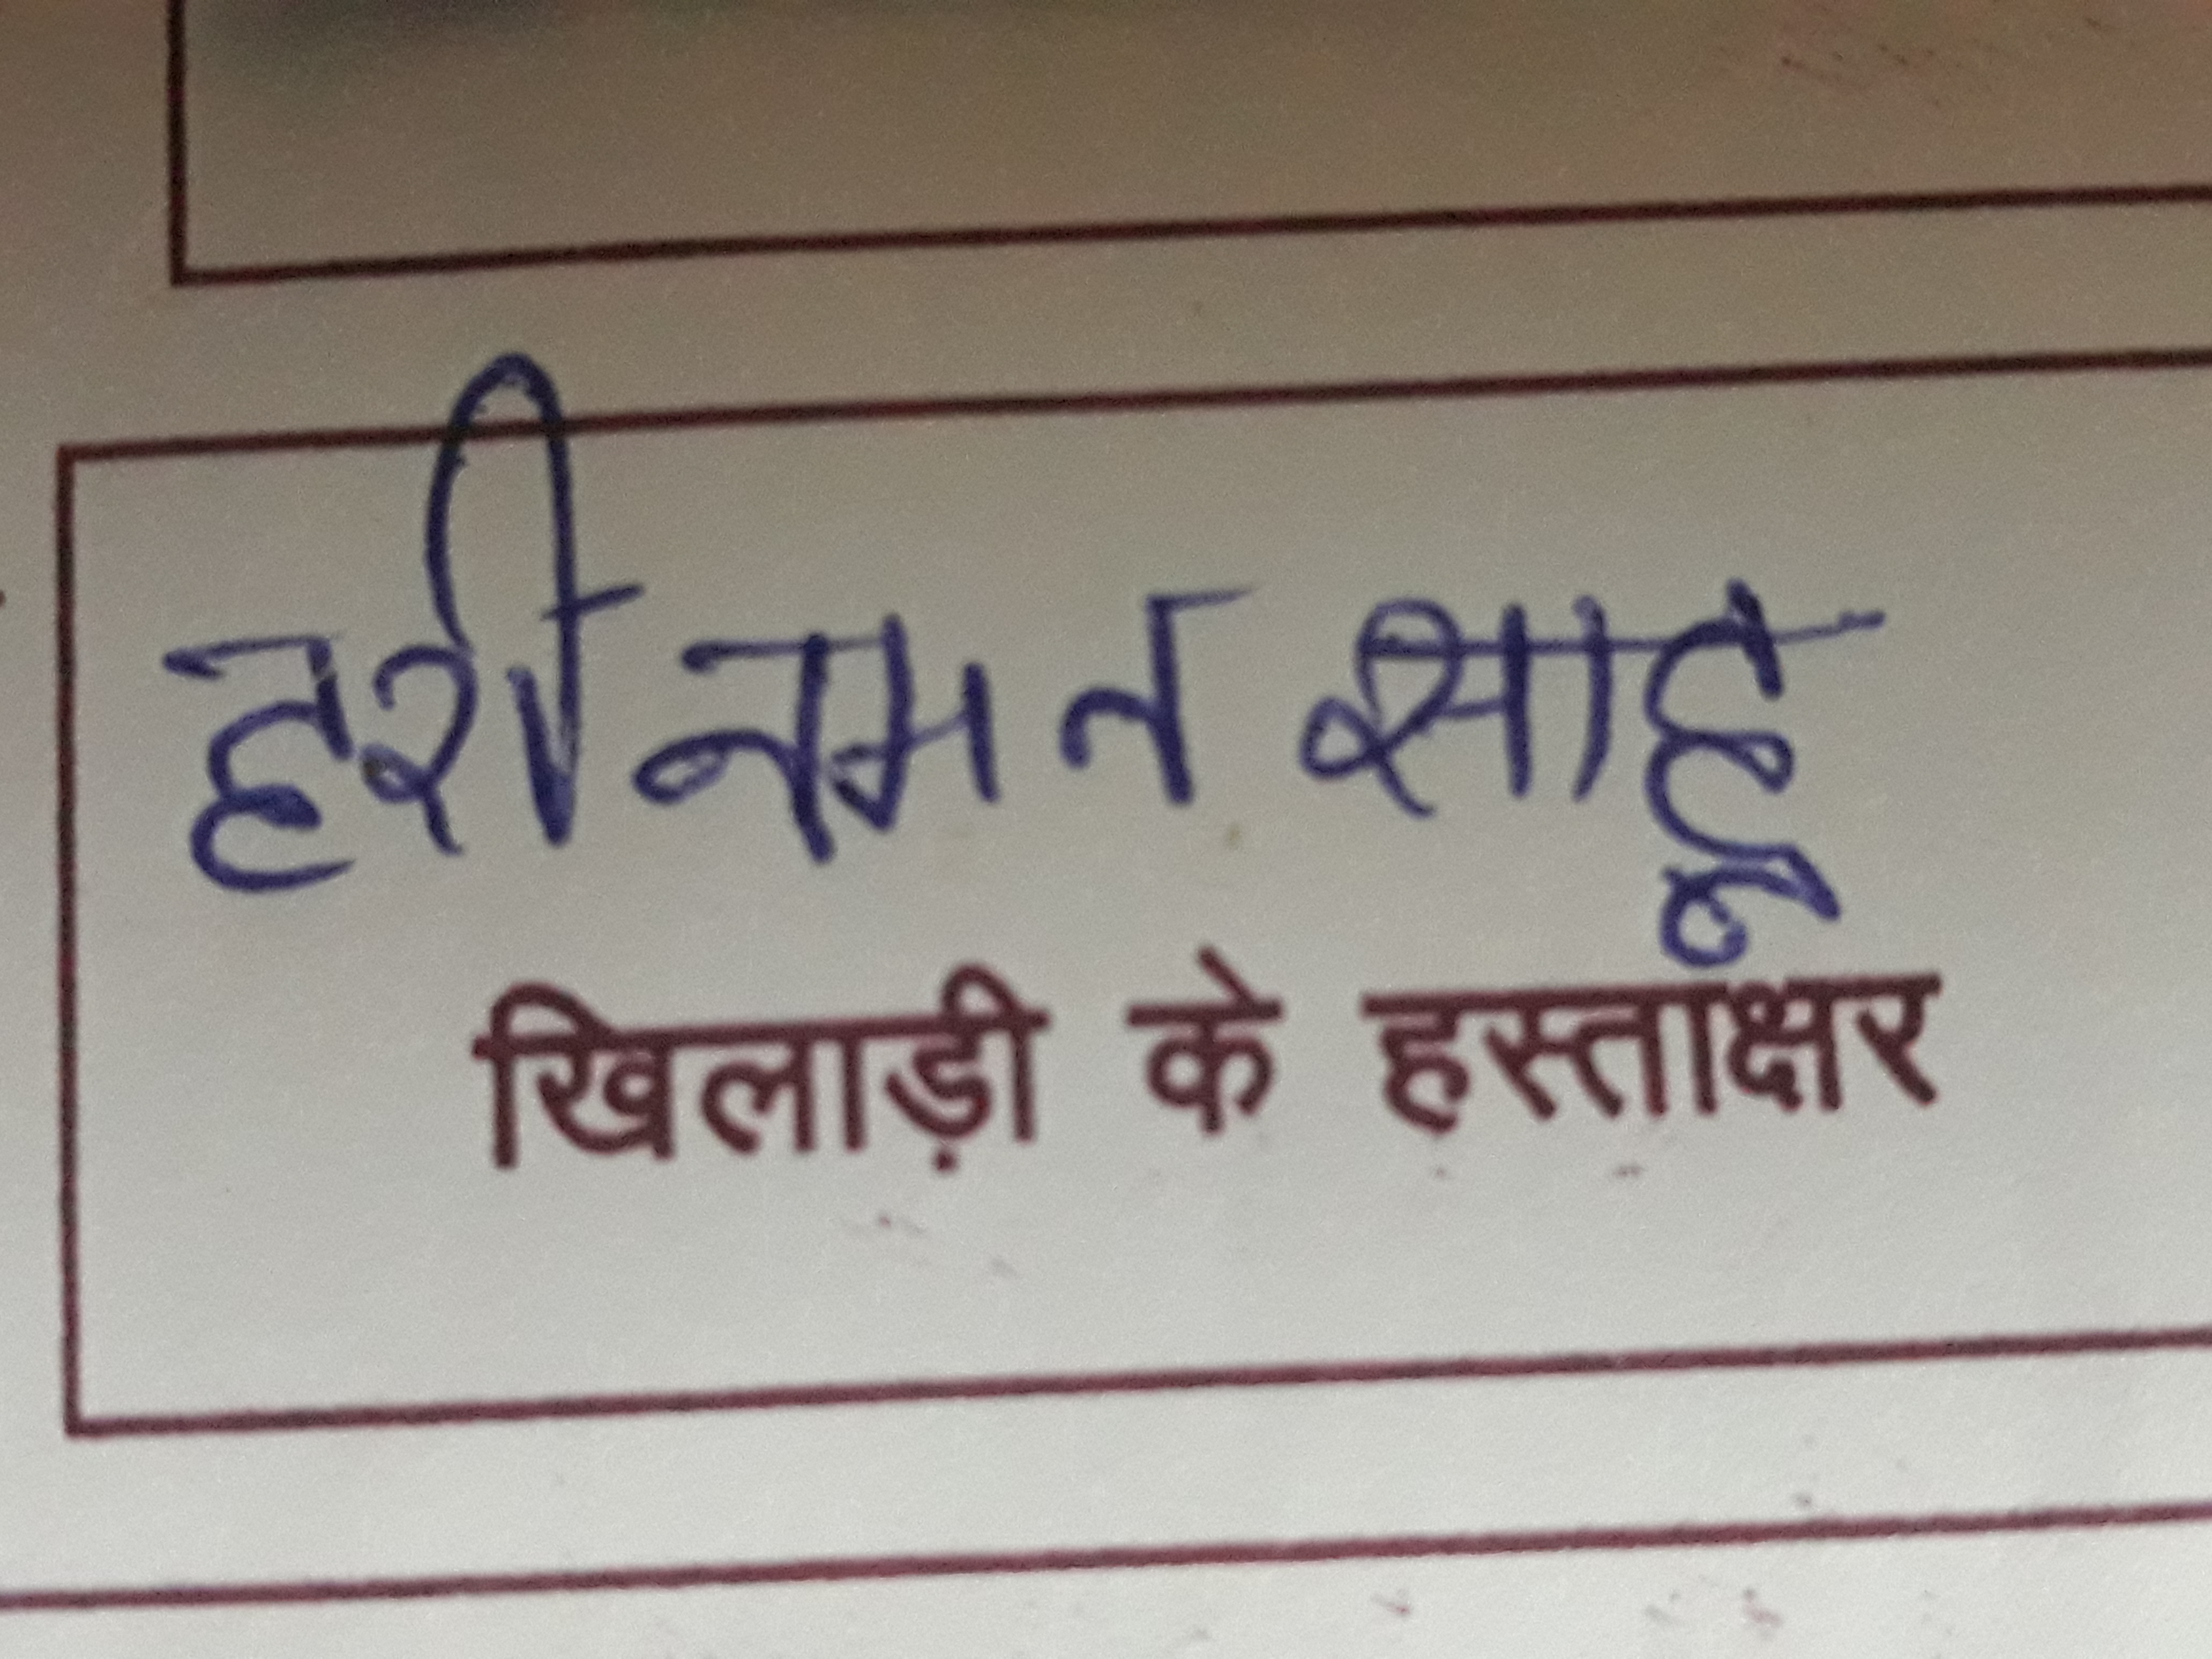 हरी नमन साहू
खिलाड़ी के हस्ताक्षर